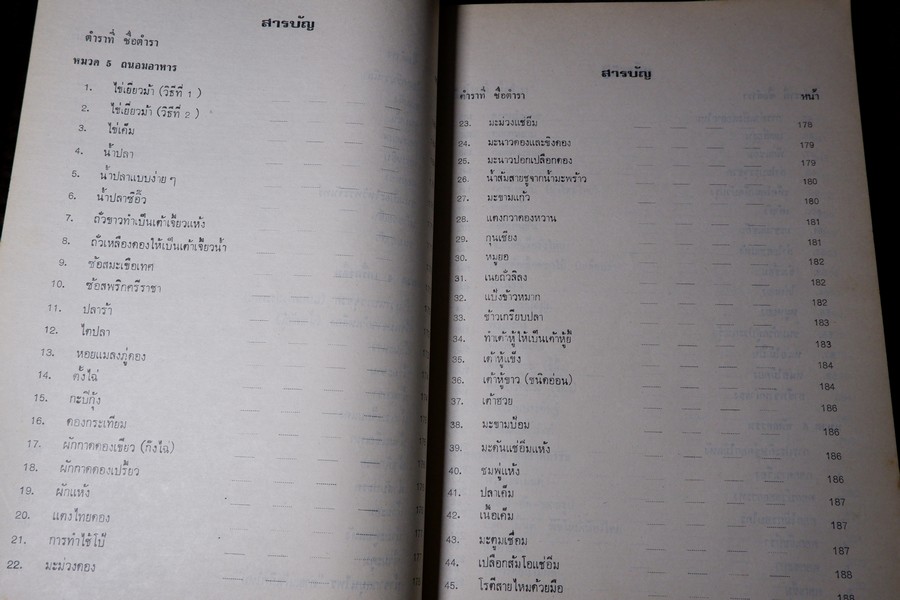 สารบัญ
ตำราที่ ชื่อตำรา
หมวด 5 ถนอมอาหาร
1. ไข่เยี่ยวม้า (วิธีที่ 1)
2. ไข่เยี่ยวม้า (วิธีที่ 2)
3. ไข่เค็ม
4. น้ำปลา
5. น้ำปลาแบบง่าย ๆ
6. น้ำปลาซีอิ๊ว
7. ถั่วขาวทำเป็นเต้าเจี้ยวแห้ง
8. ถั่วเหลืองดองให้เป็นเต้าเจี้ยวน้ำ
9. ซ้อสมะเขือเทศ
10. ซ้อสพริกศรีราชา
11. ปลาร้า
12. ไตปลา
13. หอยแมลงภู่ดอง
14. ตั้งไฉ่
15. กะปิกุ้ง
16. ดองกระเทียม
17. ผักกาดดองเขียว (กึงไฉ่)
18. ผักกาดดองเปรี้ยว
19. ผักแห้ง
20. แตงไทยดอง
21. การทำไช้โป๊
22. มะม่วงดอง
สารบัญ
ตำราที่ ชื่อตำรา หน้า
23. มะม่วงแช่อิ่ม 178
24. มะนาวดองและขิงดอง 179
25. มะนาวปอกเปลือกดอง 179
26. น้ำส้มสายชูจากน้ำมะพร้าว 180
27. มะขามแก้ว 180
28. แตงกวาดองหวาน 181
29. กุนเชียง 181
30. หมูยอ 182
31. เนยถั่วลิสง 182
32. แป้งข้าวหมาก 182
33. ข้าวเกรียบปลา 183
34. ทำเต้าหู้ให้เป็นเต้าหู้ยี้ 183
35. เต้าหู้แข็ง 184
36. เต้าหู้ขาว (ชนิดอ่อน) 184
37. เต้าฮวย 186
38. มะขามป้อม 186
39. มะดันแช่อิ่มแห้ง 186
40. ชมพู่แห้ง 186
41. ปลาเค็ม 187
42. เนื้อเค็ม 187
43. มะตูมเชื่อม 187
44. เปลือกส้มโอแช่อิ่ม 188
45. โรตีสายไหมด้วยมือ 188